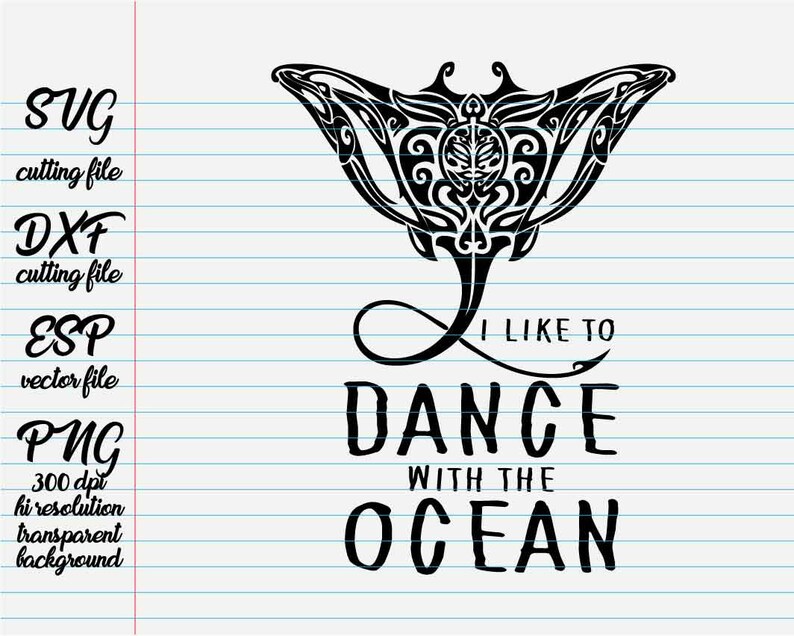 SVG
cutting file
DXF
cutting file
ESP
vector file
PNG
300 dpi
hi resolution
transparent
background
I LIKE TO
DANCE
WITH THE
OCEAN